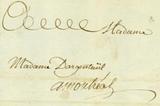 Madame
Madame Dargenteuil
a montréal